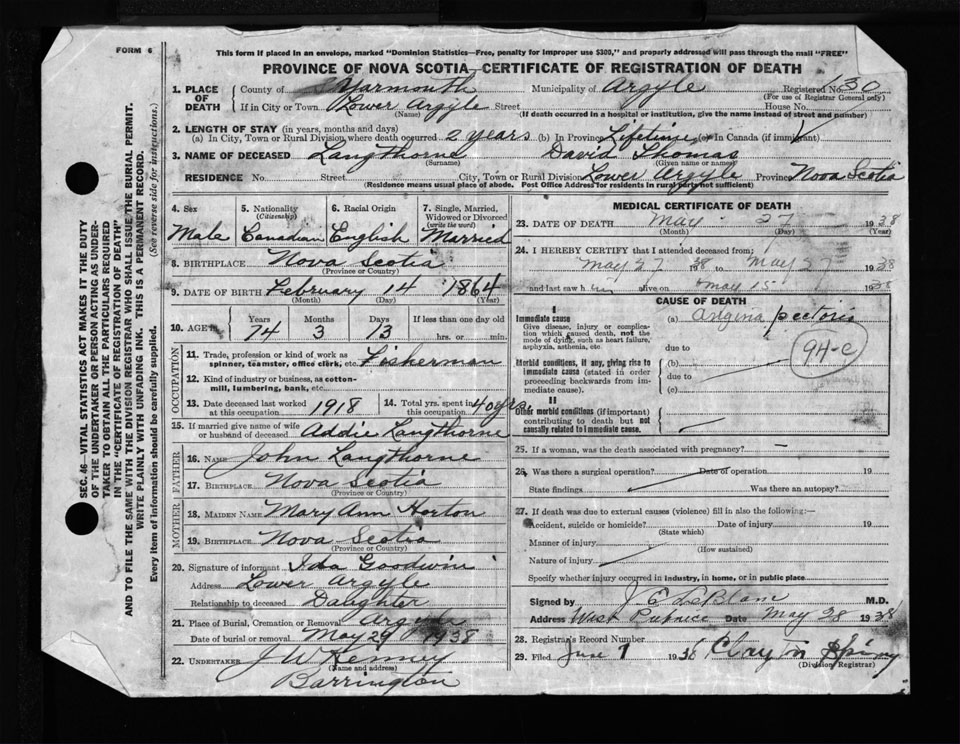 FORM 6
This form if placed in an envelope, marked "Dominion Statistics—Free, penalty for improper use $300," and properly addressed will pass through the mail "FREE"
PROVINCE OF NOVA SCOTIA—CERTIFICATE OF REGISTRATION OF DEATH
SEC. 46—VITAL STATISTICS ACT MAKES IT THE DUTY
OF THE UNDERTAKER OR PERSON ACTING AS UNDER-
TAKER TO OBTAIN ALL THE PARTICULARS REQUIRED
IN THE "CERTIFICATE OF REGISTRATION OF DEATH"
AND TO FILE THE SAME WITH THE DIVISION REGISTRAR WHO SHALL ISSUE THE BURIAL PERMIT.
WRITE PLAINLY WITH UNFADING INK. THIS IS A PERMANENT RECORD.
Every item of Information should be carefully supplied. (See reverse side for instructions.)
1. PLACE OF DEATH County of Yarmouth Municipality of Argyle Registered No. 30
(For use of Registrar General only)
If in City or Town Lower Argyle Street House No.
(Name) (If death occurred in a hospital or institution, give the name instead of street and number)
2. LENGTH OF STAY (in years, months and days)
(a) In City, Town or Rural Division where death occurred 2 years (b) In Province Lifetime (c) In Canada (if immigrant)
3. NAME OF DECEASED Langthorne David Thomas
(Surname) (Given name or names)
RESIDENCE No. Street City, Town or Rural Division Lower Argyle Province Nova Scotia
(Residence means usual place of abode. Post Office Address for residents in rural parts not sufficient)
4. Sex 5. Nationality (Citizenship) 6. Racial Origin 7. Single, Married, Widowed or Divorced (write the word)
Male Canadian English Married
8. BIRTHPLACE Nova Scotia
(Province or Country)
9. DATE OF BIRTH February 14 1864
(Month) (Day) (Year)
10. AGE Years Months Days If less than one day old
74 3 13 hrs. or min.
OCCUPATION
11. Trade, profession or kind of work as spinner, teamster, office clerk, etc. Fisherman
12. Kind of industry or business, as cotton-mill, lumbering, bank, etc.
13. Date deceased last worked at this occupation 1918 14. Total yrs. spent in this occupation 40 yrs.
15. If married give name of wife or husband of deceased Addie Langthorne
FATHER
16. NAME John Langthorne
17. BIRTHPLACE Nova Scotia
(Province or Country)
MOTHER
18. MAIDEN NAME Mary Ann Horton
19. BIRTHPLACE Nova Scotia
(Province or Country)
20. Signature of informant Ida Goodwin
Address Lower Argyle
Relationship to deceased Daughter
21. Place of Burial, Cremation or Removal Argyle
Date of burial or removal May 29 1938
22. UNDERTAKER J W Kenney
(Name and address)
Barrington
MEDICAL CERTIFICATE OF DEATH
23. DATE OF DEATH May 27 1938
(Month) (Day) (Year)
24. I HEREBY CERTIFY that I attended deceased from:
May 27 1938 to May 27 1938
and last saw him alive on May 15 1938
CAUSE OF DEATH
I
Immediate cause (a) Angina pectoris
Give disease, injury or complication which caused death, not the mode of dying, such as heart failure, asphyxia, asthenia, etc.
due to
94-c
Morbid conditions, if any, giving rise to immediate cause (stated in order proceeding backwards from immediate cause). (b)
due to
(c)
II
Other morbid conditions (if important) contributing to death but not causally related to immediate cause.
25. If a woman, was the death associated with pregnancy? —
26. Was there a surgical operation? Date of operation 19
State findings Was there an autopsy?
27. If death was due to external causes (violence) fill in also the following:—
Accident, suicide or homicide? Date of injury 19
(State which)
Manner of injury
(How sustained)
Nature of injury
Specify whether injury occurred in industry, in home, or in public place
Signed by J E LeBlanc M.D.
Address West Pubnico Date May 28 1938
28. Registrar's Record Number
29. Filed June 1 1938
(Division Registrar)